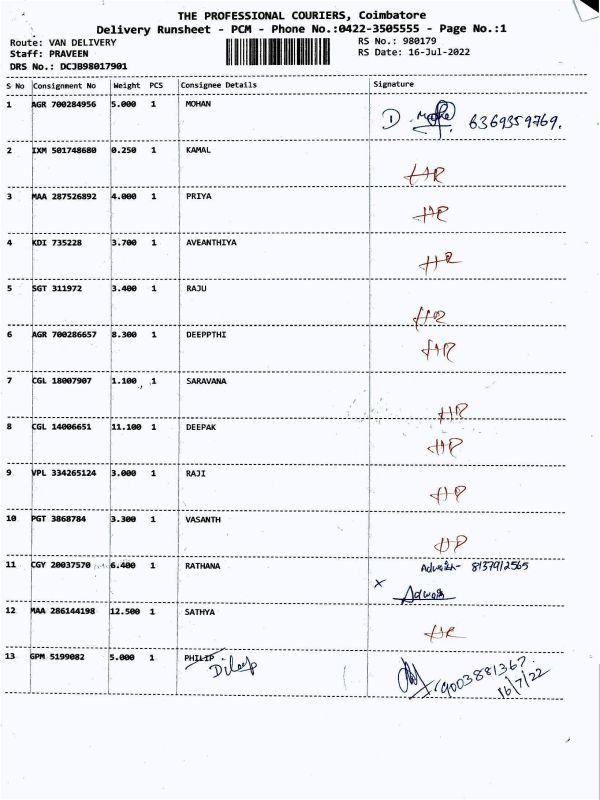 THE PROFESSIONAL COURIERS, Coimbatore
Delivery Runsheet - PCM - Phone No.:0422-3505555 - Page No.:1
Route: VAN DELIVERY
RS No.: 980179
Staff: PRAVEEN
RS Date: 16-Jul-2022
DRS No.: DCJB98017901
S No Consignment No Weight PCS Consignee Details Signature
1 AGR 700284956 5.000 1 MOHAN
D 6369359769.
2 IXM 501748680 0.250 1 KAMAL
HR
3 MAA 287526892 4.000 1 PRIYA
HR
4 KDI 735228 3.700 1 AVEANTHIYA
HR
5 SGT 311972 3.400 1 RAJU
HR
6 AGR 700286657 8.300 1 DEEPPTHI
HR
7 CGL 18007907 1.100 1 SARAVANA
HR
8 CGL 14006651 11.100 1 DEEPAK
HR
9 VPL 334265124 3.000 1 RAJI
HR
10 PGT 3868784 3.300 1 VASANTH
HR
11 CGY 20037570 6.400 1 RATHANA 8137912565
x
12 MAA 286144198 12.500 1 SATHYA
HR
13 GPM 5199082 5.000 1 PHILIP
Dileep
9003881367.
16/7/22